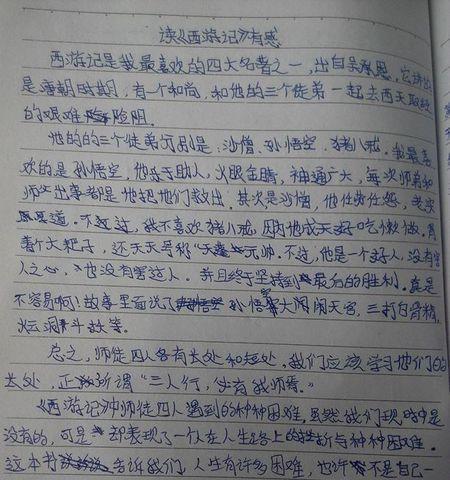 读《西游记》有感
西游记是我最喜欢的四大名著之一，出自吴承恩。它讲的
是唐朝时期，有一个和尚，和他的三个徒弟一起去西天取经
的艰难险阻。
他的的三个徒弟分别是：沙僧、孙悟空、猪八戒。我最喜
欢的是孙悟空，他乐于助人，火眼金睛，神通广大，每次师弟和
师父出事都是他把他们救出。其次是沙僧，他任劳任怨，老实
厚道。不过，我不喜欢猪八戒，因为他成天好吃懒做，背
着个大耙子，还天天号称"天蓬元帅。不过，他是一个好人，没有害
人之心，也没有害过人。并且终于坚持到最后的胜利。真是
不容易啊！故事里面说了孙悟空大闹天宫，三打白骨精，
火云洞斗故等。
总之，师徒四人各有长处和短处，我们应该学习他们的
长处，正所谓"三人行，必有我师焉。"
《西游记》中师徒四人遇到的种种困难，虽然我们现时中是
没有的，可是却表现了一个人在人生路上的挫折与种种困难。
这本书告诉我们，人生有许多困难，也许不是自己一